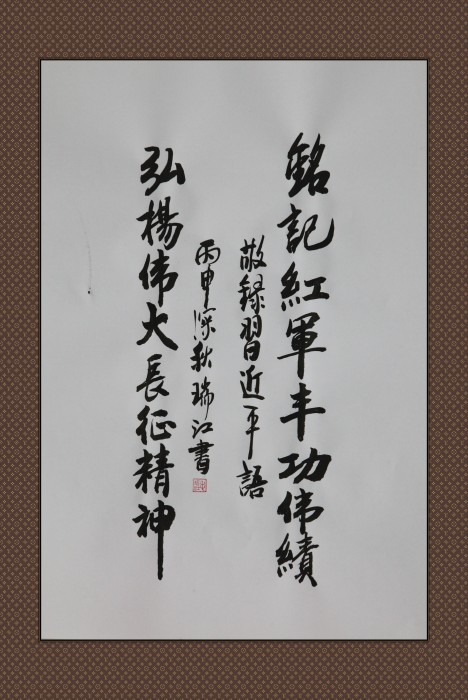 銘記紅軍丰功伟績
敬録習近平語
弘楊伟大長征精神
丙申深秋瑞江書